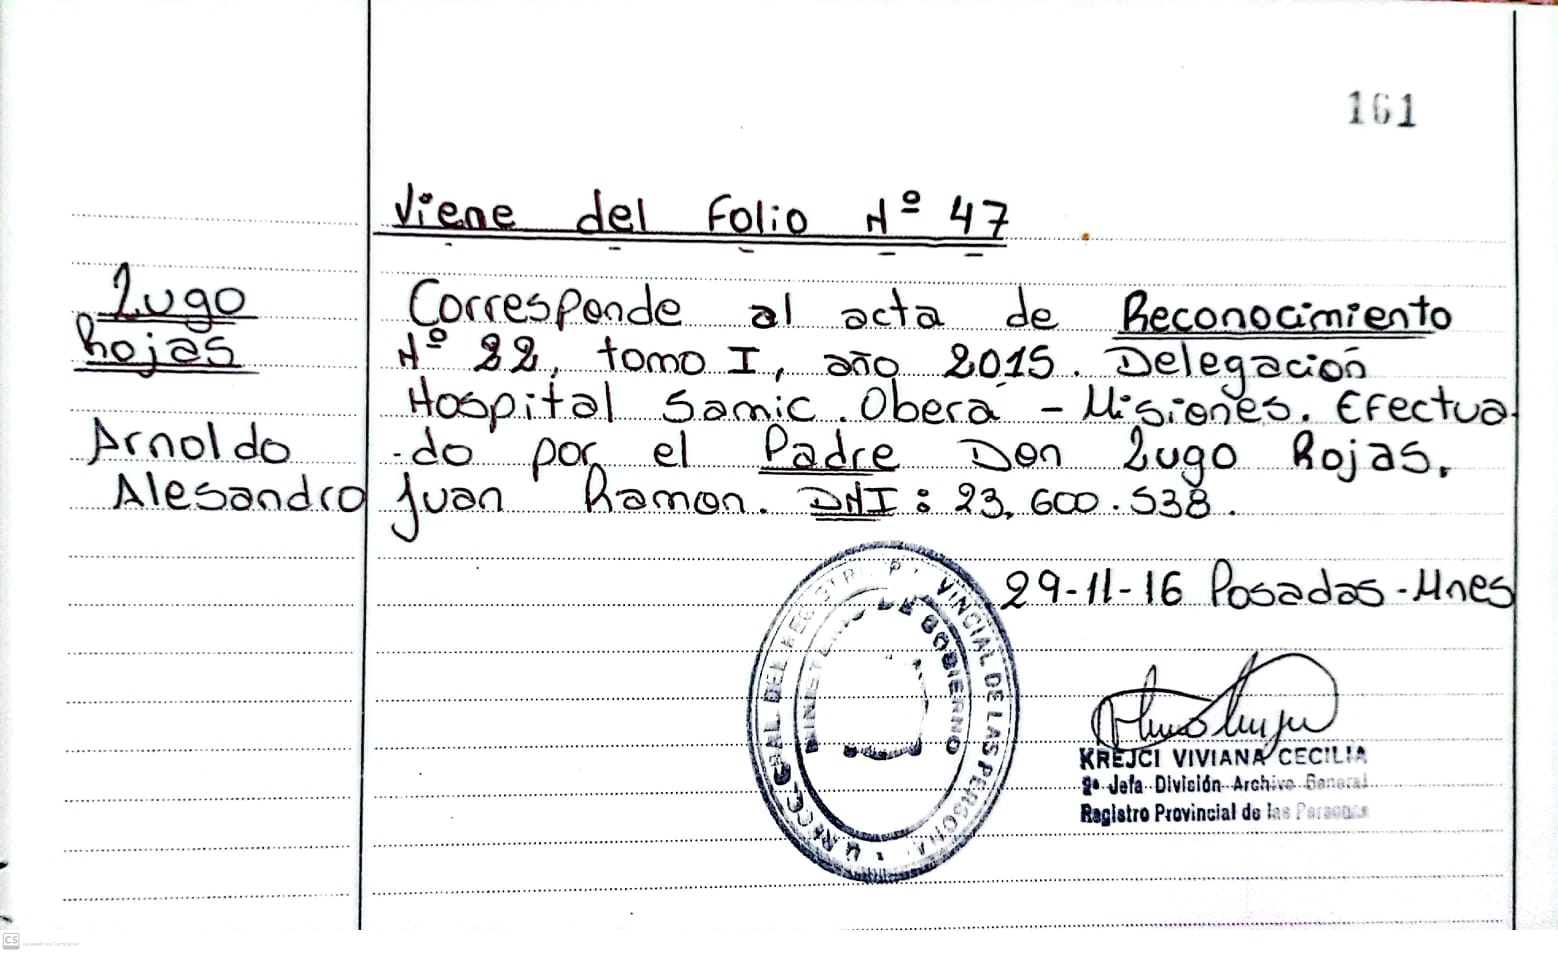 161
Viene del Folio Nº 47
Lugo
Rojas
Arnoldo
Alesandro
Corresponde al acta de Reconocimiento
Nº 22, tomo I, año 2015. Delegación
Hospital Samic. Oberá - Misiones. Efectua
-do por el Padre Don Lugo Rojas.
Juan Ramon. DNI: 23.600.538.
29-11-16 Posadas-Mnes
MINISTERIO DE GOBIERNO
KREJCI VIVIANA CECILIA
2ª Jefa División Archivo General
Registro Provincial de las Personas
CS